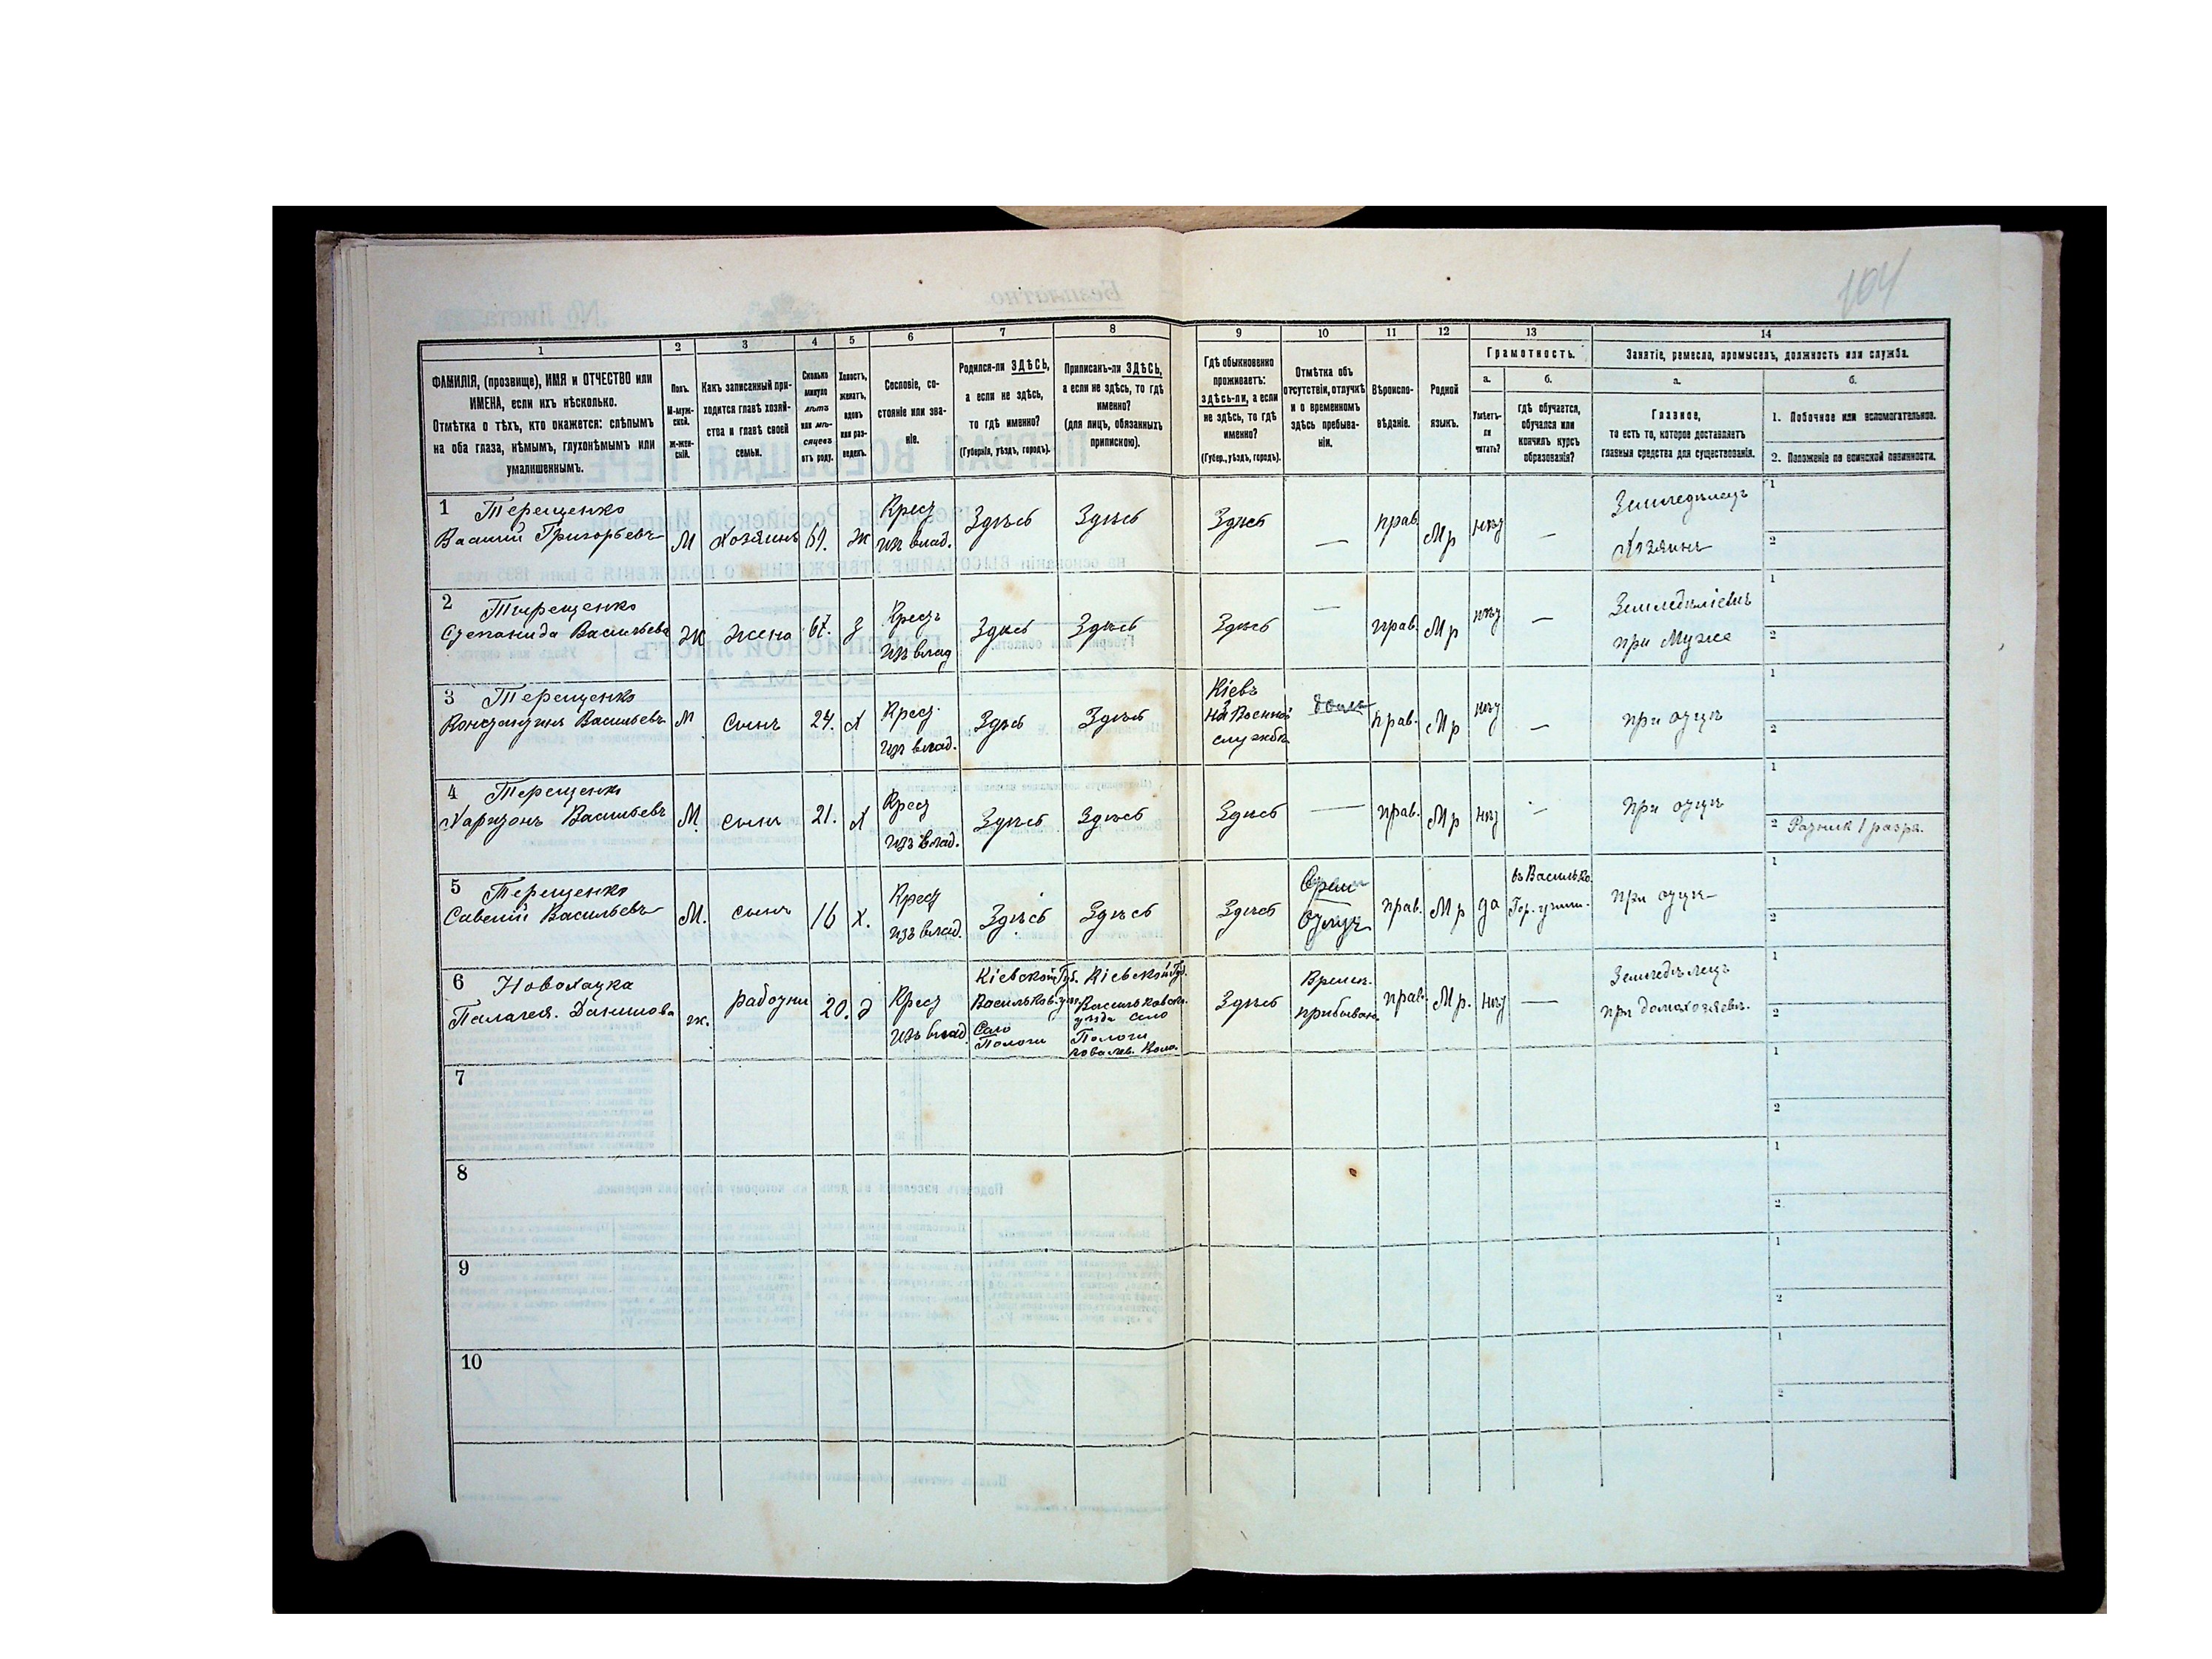 104
1 2 3 4 5 6 7 8 9 10 11 12 13 14
ФАМИЛІЯ, (прозвище), ИМЯ и ОТЧЕСТВО или
ИМЕНА, если ихъ нѣсколько.
Отмѣтка о тѣхъ, кто окажется: слѣпымъ
на оба глаза, нѣмымъ, глухонѣмымъ или
умалишеннымъ.
Полъ.
М-муж-
ской.
Ж-жен-
скій.
Какъ записанный при-
ходится главѣ хозяй-
ства и главѣ своей
семьи.
Сколько
минуло
лѣтъ
или мѣ-
сяцевъ
отъ роду.
Холостъ,
женатъ,
вдовъ
или раз-
веденъ.
Сословіе, со-
стояніе или зва-
ніе.
Родился-ли ЗДѢСЬ,
а если не здѣсь,
то гдѣ именно?
(Губернія, уѣздъ, городъ).
Приписанъ-ли ЗДѢСЬ,
а если не здѣсь, то гдѣ
именно?
(для лицъ, обязанныхъ
припискою).
Гдѣ обыкновенно
проживаетъ:
здѣсь-ли, а если
не здѣсь, то гдѣ
именно?
(Губер., уѣздъ, городъ).
Отмѣтка объ
отсутствіи, отлучкѣ
и о временномъ
здѣсь пребыва-
ніи.
Вѣроиспо-
вѣданіе.
Родной
языкъ.
Грамотность.
а.
Умѣетъ-
ли
читать?
б.
гдѣ обучается,
обучался или
кончилъ курсъ
образованія?
Занятіе, ремесло, промыселъ, должность или служба.
а.
Главное,
то есть то, которое доставляетъ
главныя средства для существованія.
б.
1. Побочное или вспомогательное.
2. Положеніе по воинской повинности.
1 Терещенко
Василій Григорьевъ М Хозяинъ ж Крест
изъ влад. Здѣсь Здѣсь Здѣсь — прав. Мр нѣт — Земледѣлецъ
Хозяинъ 1
2
2 Терещенко
Степанида Васильева Ж жена 67. з Крестъ
изъ влад Здѣсь Здѣсь Здѣсь — прав. Мр нѣт —
при Муже 1
2
3 Терещенко
Константинъ Васильевъ М Сынъ 24. Х Крест.
изъ влад. Здѣсь Здѣсь Кіевъ
на Военной
службѣ прав. Мр нѣт — при отцѣ 1
2
4 Терещенко
Харитонъ Васильевъ М. сынъ 21. Х Крест
изъ влад. Здѣсь Здѣсь Здѣсь — прав. Мр нѣт — при отцѣ 1
2 Ратник 1 разря.
5 Терещенко
Савелий Васильевъ М. сынъ 16 Х. Крест
изъ влад. Здѣсь Здѣсь Здѣсь прав. Мр да въ Василько.
Гор. учил. при отцѣ 1
2
6 Новохатка
Палагея. Данилова ж. 20. д Крест
изъ влад Кіевской Губ.
Васильков. уѣз.
Село
Пологи Кіевской Губ.
Васильковск.
уѣзда село
Пологи
Здѣсь Времен.
прибываю прав. Мр. нѣт — Земледѣлецъ
при домахозяевѣ. 1
2
7 1
2
8 1
2
9 1
2
10 1
2